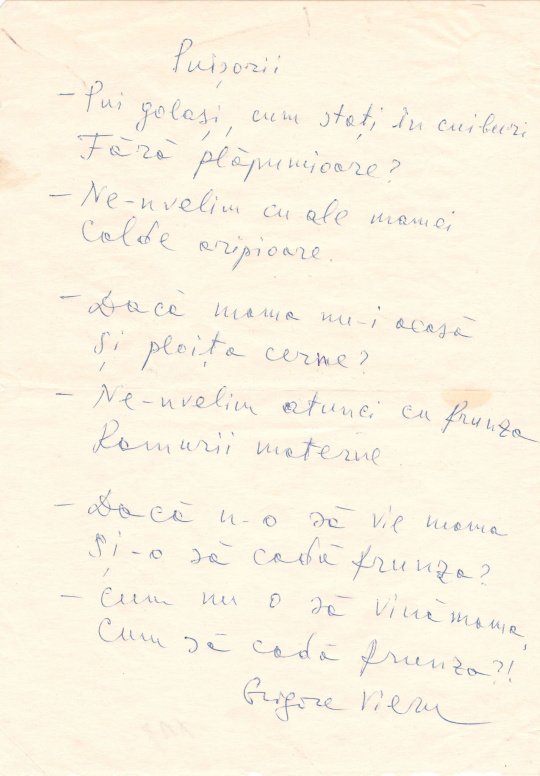 Puișorii
– Pui golași, cum stați în cuiburi
Fără plăpumioare?
– Ne-nvelim cu ale mamei
Calde aripioare.
– Dacă mama nu-i acasă
Și ploița cerne?
– Ne-nvelim atunci cu frunza
Ramurii materne
– Dacă n-o să vie mama
Și-o să cadă frunza?
– Cum nu o să vină mama,
Cum să cadă frunza?!
Grigore Vieru